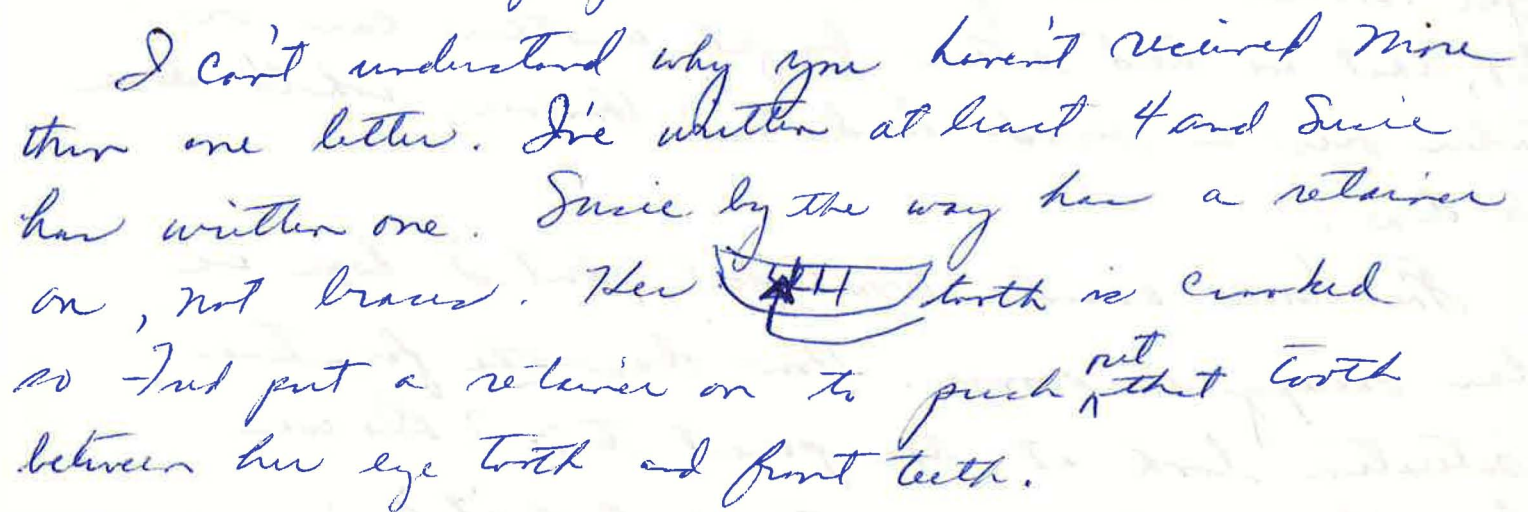 I can't understand why you haven't received more
than one letter. I've written at least 4 and Susie
has written one. Susie by the way has a retainer
on, not braces. Her tooth is crooked
so Fred put a retainer on to push out that tooth
between her eye tooth and front teeth.